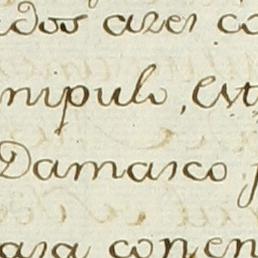 ados azes co
nipulo, est
Damasco,
para conten